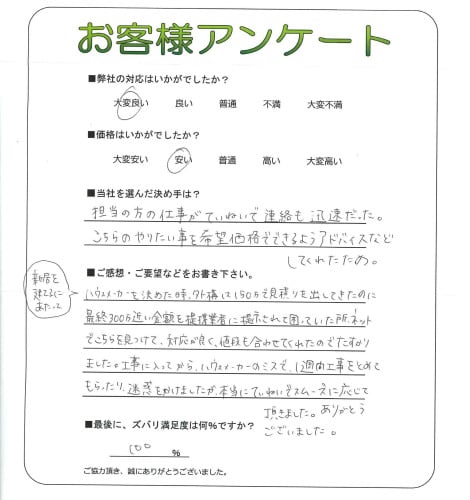 お客様アンケート
■弊社の対応はいかがでしたか?
大変良い 良い 普通 不満 大変不満
■価格はいかがでしたか?
大変安い 安い 普通 高い 大変高い
■当社を選んだ決め手は?
担当の方の仕事がていねいで連絡も迅速だった。
こちらのやりたい事を希望価格でできるようアドバイスなど
してくれたため。
新居を
建てるに
あたって
■ご感想・ご要望などをお書き下さい。
ハウスメーカーを決めた時、外構は150万で見積りを出してきたのに
最終300万近い金額を提携業者に提示されて困っていた所、ネット
でこちらを見つけて、対応が良く、値段も合わせてくれたのでたすかり
ました。工事に入ってから、ハウスメーカーのミスで、1週間工事をとめて
もらったり、迷惑をかけましたが、本当にていねいでスムーズに応じて
頂きました。ありがとう
ございました。
■最後に、ズバリ満足度は何%ですか?
100 %
ご協力頂き、誠にありがとうございました。